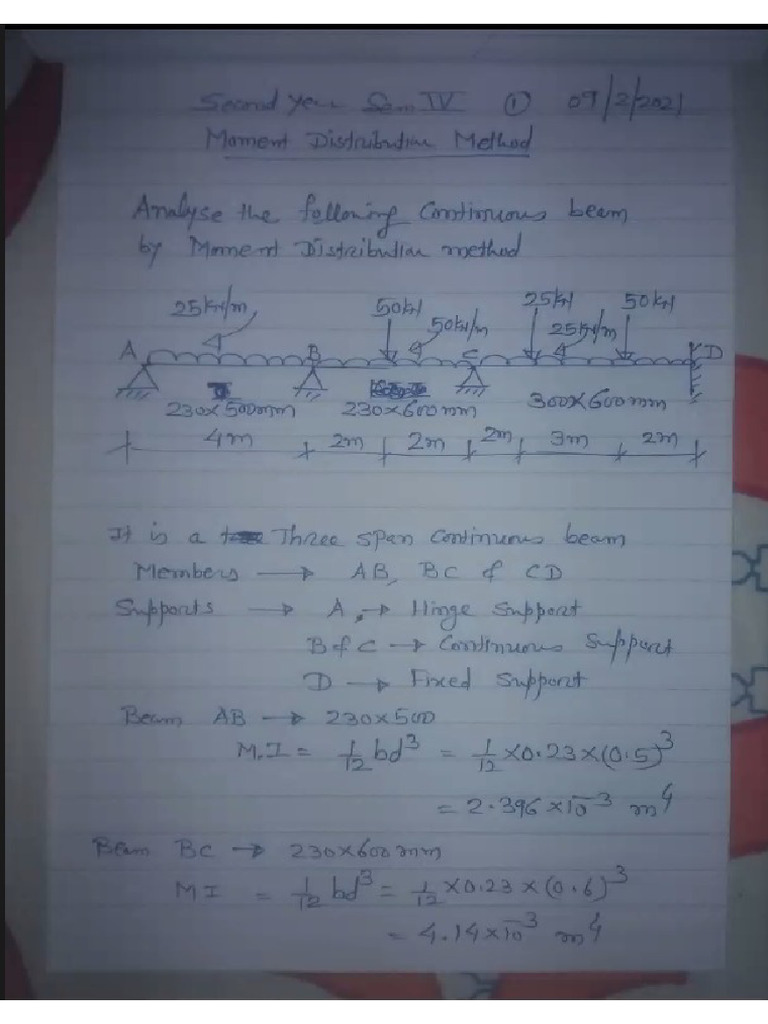 Second Year Sem IV ① 09/2/2021
Moment Distribution Method
Analyse the following Continuous beam
by Moment Distribution method
25kN/m 50kN 50kN/m 25kN 25kN/m 50kN
A B C D
230×500mm 230×600mm 300×600mm
4m 2m 2m 2m 3m 2m
It is a Three span continuous beam
Members → AB, BC & CD
Supports → A, → Hinge support
B & C → Continuous support
D → Fixed support
Beam AB → 230×500
M.I = 1/12 bd³ = 1/12 ×0.23×(0.5)³
= 2.396×10⁻³ m⁴
Beam BC → 230×600mm
MI = 1/12 bd³ = 1/12 ×0.23×(0.6)³
= 4.14×10⁻³ m⁴